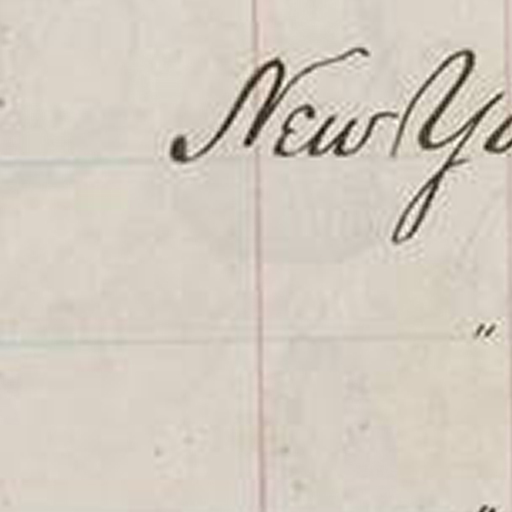 New Yo
"
"